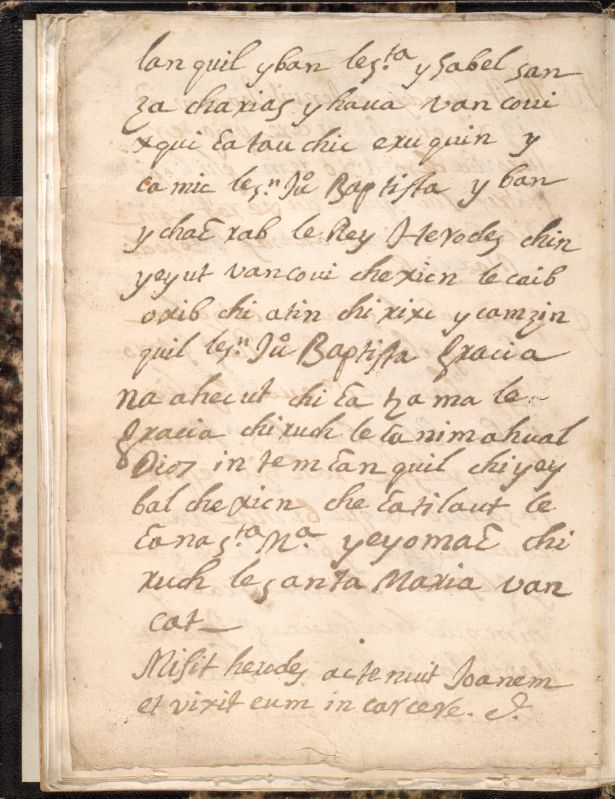 lan quil yban le s.ta ysabel san
za charias y haua van coui
xqui ca tau chic eru quin y
camic le s.n Ju.o Baptista yban
ychac rab le Rey Herodes chin
yeyut van coui che xicn le caib
oxib chi atin chi rixc y camzin
quil le s.n Ju.o Baptista gracia
na ahecut chi ca tza ma le
gracia chi ruch le ca nimahual
Dios in tem can quil chi yey
bal che xicn che ca tilaut le
cana s.ta M.a yeyomac chi
ruch le santa Maria van
cat
Misit herodes ac tenuit Joanem
et vixit eum in carcere. &.